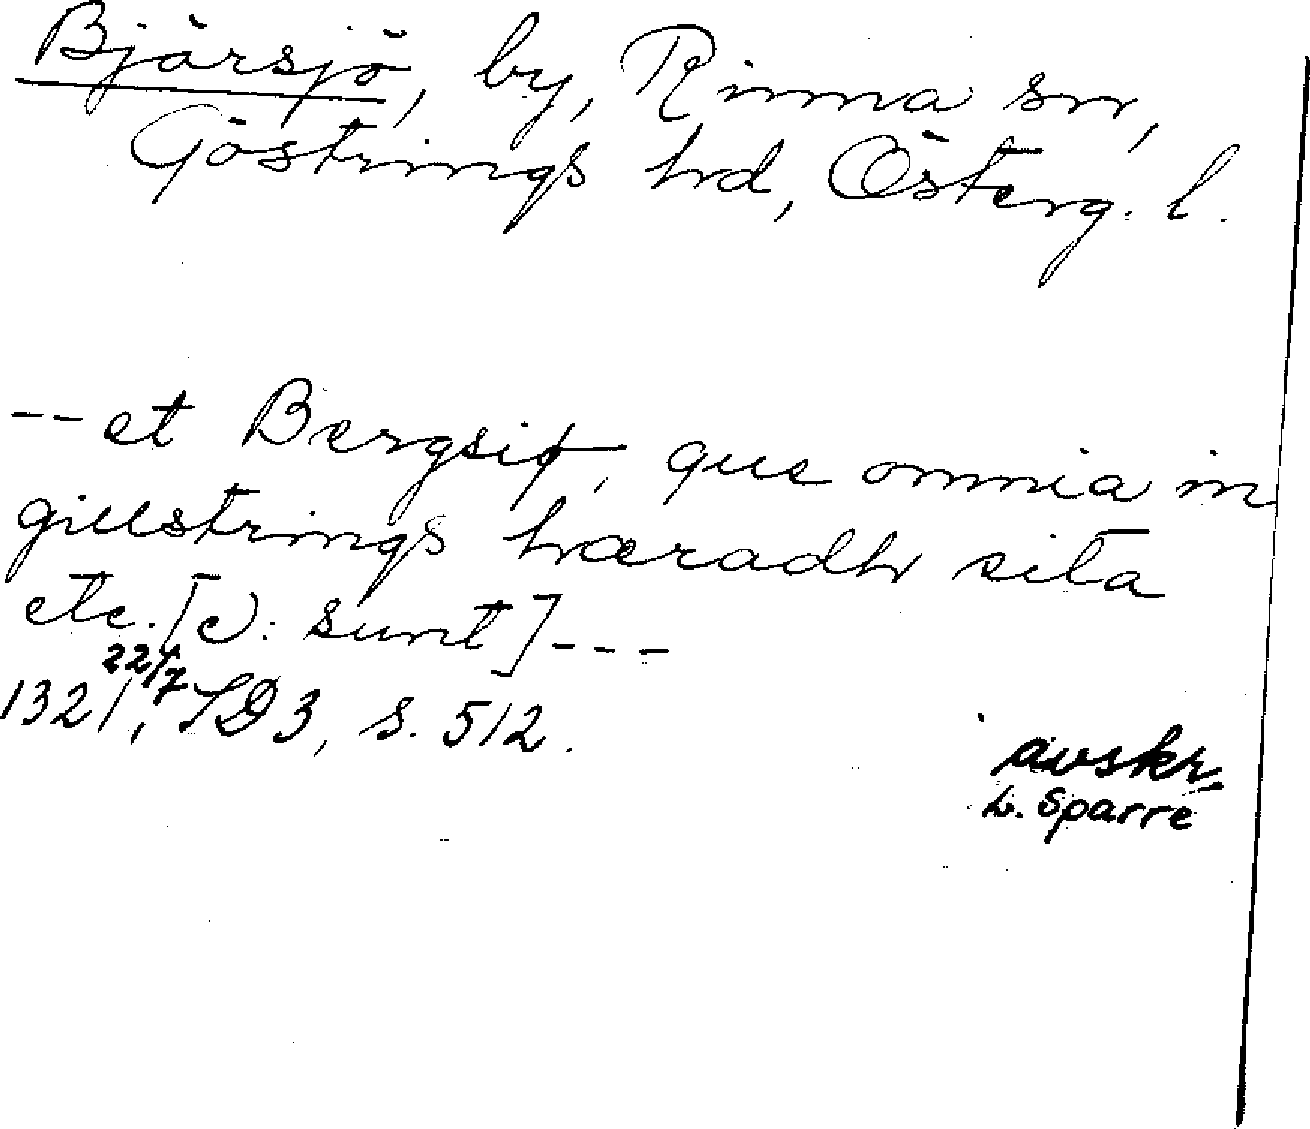 Bjärsjö, by, Rinna sn,
Göstrings hrd, Österg. l.
-- et Bergsiø, que omnia in
gillstrings hæradh sita
etc. [ɔ: sunt] ---
1321 22/7, SD 3, s. 512.
avskr.
L. Sparre